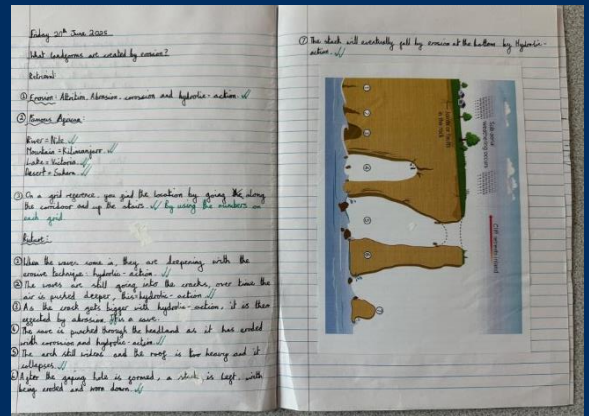 Friday 20th June 2025
What landforms are created by erosion?
Retrieval:
① Erosion: Attrition, Abrasion, corrosion and hydrolic-action.
② Famous
River = Nile
Mountain = Kilimanjaro
Lake = Victoria
Desert = Sahara
③ On a grid reference, you find the location by going along
the corridoor and up the stairs. By using the numbers on
each grid
① When the waves come in, they are deepening with the
erosive technique: hydrolic-action.
② The waves are still going into the cracks, over time the
air is pushed deeper, this hydrolic-action.
③ As the crack gets bigger with hydrolic-action, it is then
effected by abrasion, is a cave.
④ The cave is punched through the headland as it has eroded
with corrosion and hydrolic-action.
⑤ The arch still widens and the roof is too heavy and it
collapses.
⑥ After the gaping hole is formed, a stack, is left with
being eroded and worn down.
⑦ The stack will eventually fall by erosion at the bottom by Hydrolic-
action.
Sub-aerial
weathering occurs
Cliff retreats inland
in the rock
1
2
3
4
5
6
7